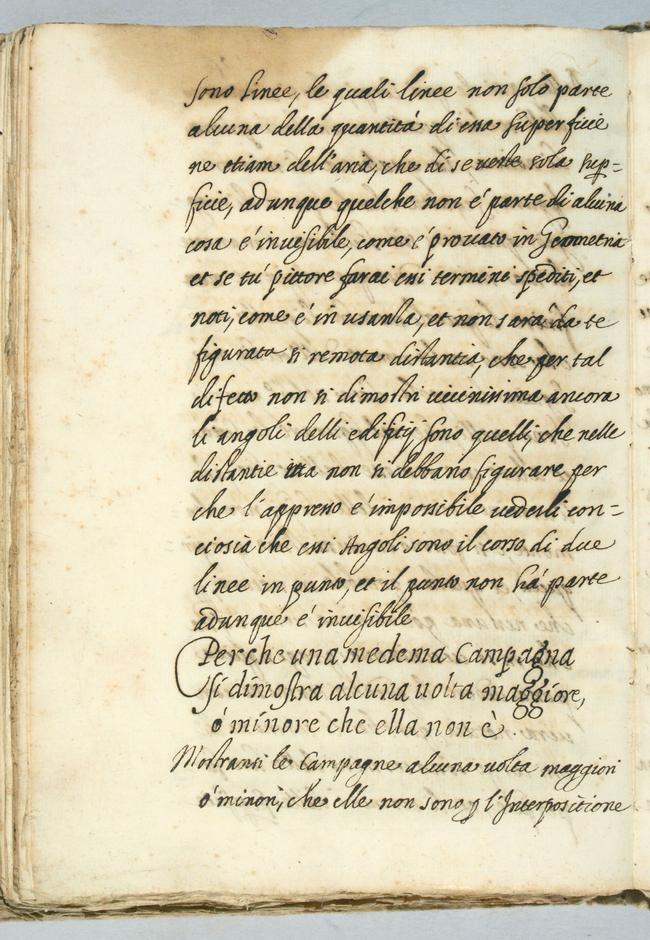 sono linee, le quali linee non solo parte
alcuna della quantitá di essa superficie
ne etiam dell'aria, che di se ueste sola sup=
ficie, adunque quelche non é parte di alcuna
cosa é inuisibile, come é prouato in Geometria
et se tú pittore farai essi termini spediti, et
noti, come é in usanza, et non sará da te
figurato si remota distantia, che per tal
difetto non si dimostri uicinissima ancora
li angoli delli edifitij sono quelli, che nelle
distantie non si debbano figurare per
che l'appresso é impossibile uederli con=
ciosia che essi Angoli sono il corso di due
linee in punto, et il punto non há parte
adunque é inuisibile
Perche una medema Campagna
si dimostra alcuna uolta maggiore,
ó minore che ella non è.
Mostransi le Campagne alcuna uolta maggiori
ó minori, che elle non sono p l'Interpositione